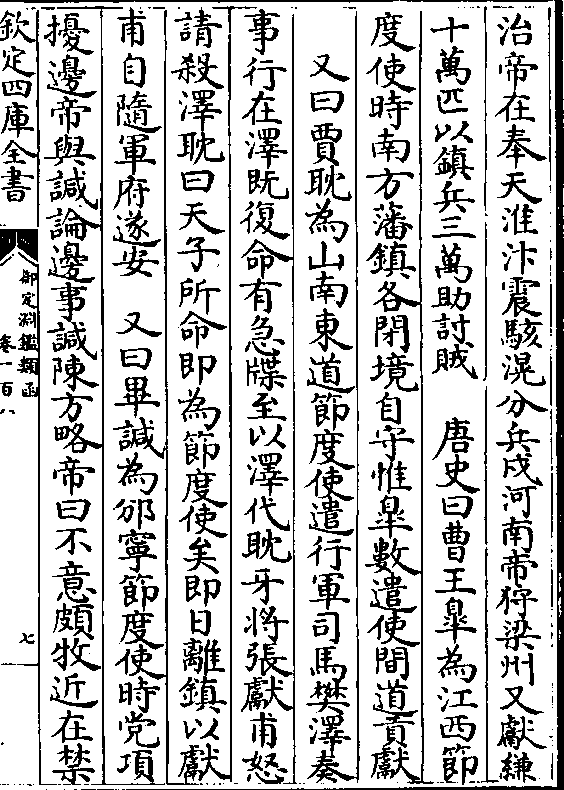 治帝在奉天淮汴震駭滉分兵戍河南帝狩梁州又獻縑
十萬匹以鎮兵三萬助討賊　唐史曰曹王臯為江西節
度使時南方藩鎮各閉境自守惟臯數遣使間道貢獻
又曰賈耽為山南東道節度使遣行軍司馬樊澤奏
事行在澤既復命有急牒至以澤代耽牙將張獻甫怒
請殺澤耽曰天子所命即為節度使矣即日離鎮以獻
甫自隨軍府遂安　又曰畢諴為邠寧節度使時党項
擾邊帝與諴論邊事諴陳方略帝曰不意頗牧近在禁
欽定四庫全書
御定淵鑑類函
卷一百八
七